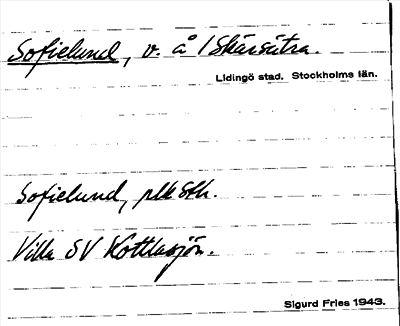 Sofielund, v. å 1 Skärsätra.
Lidingö stad. Stockholms län.
Sofielund, plk Sth.
Villa SV Kottlasjön.
Sigurd Fries 1943.